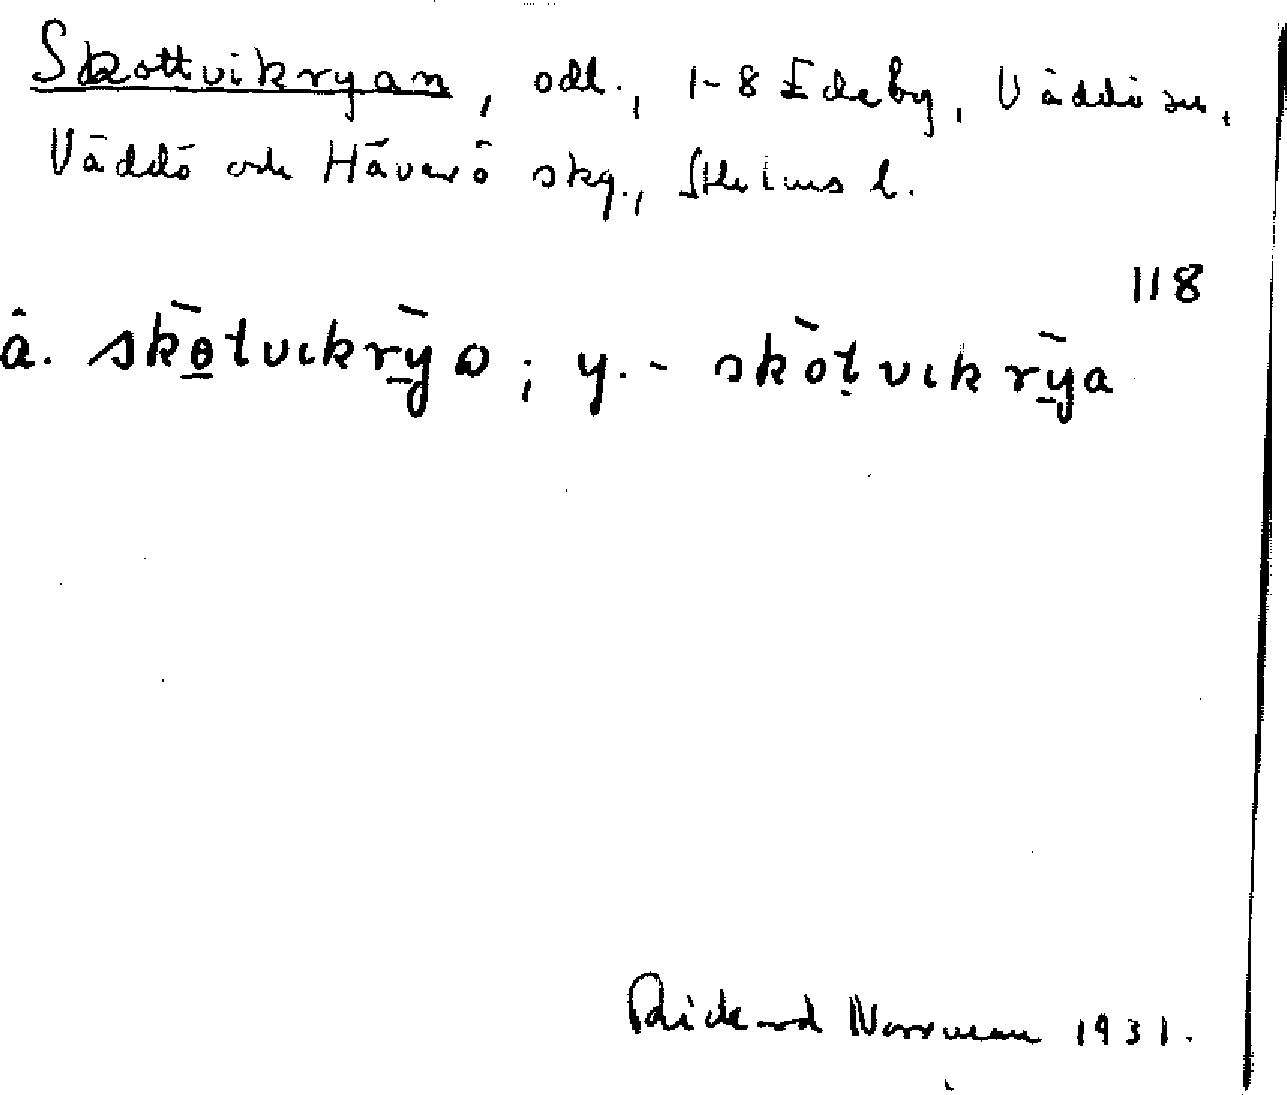 Skottvikryan, odl., 1-8 Edeby, Väddö sn,
Väddö och Häverö skg., Sthlms l.
118
ä. skǫ̀tvıkrȳ̠a ; y. - skòtvıkrȳ̠a
Rickard Norrman 1931.